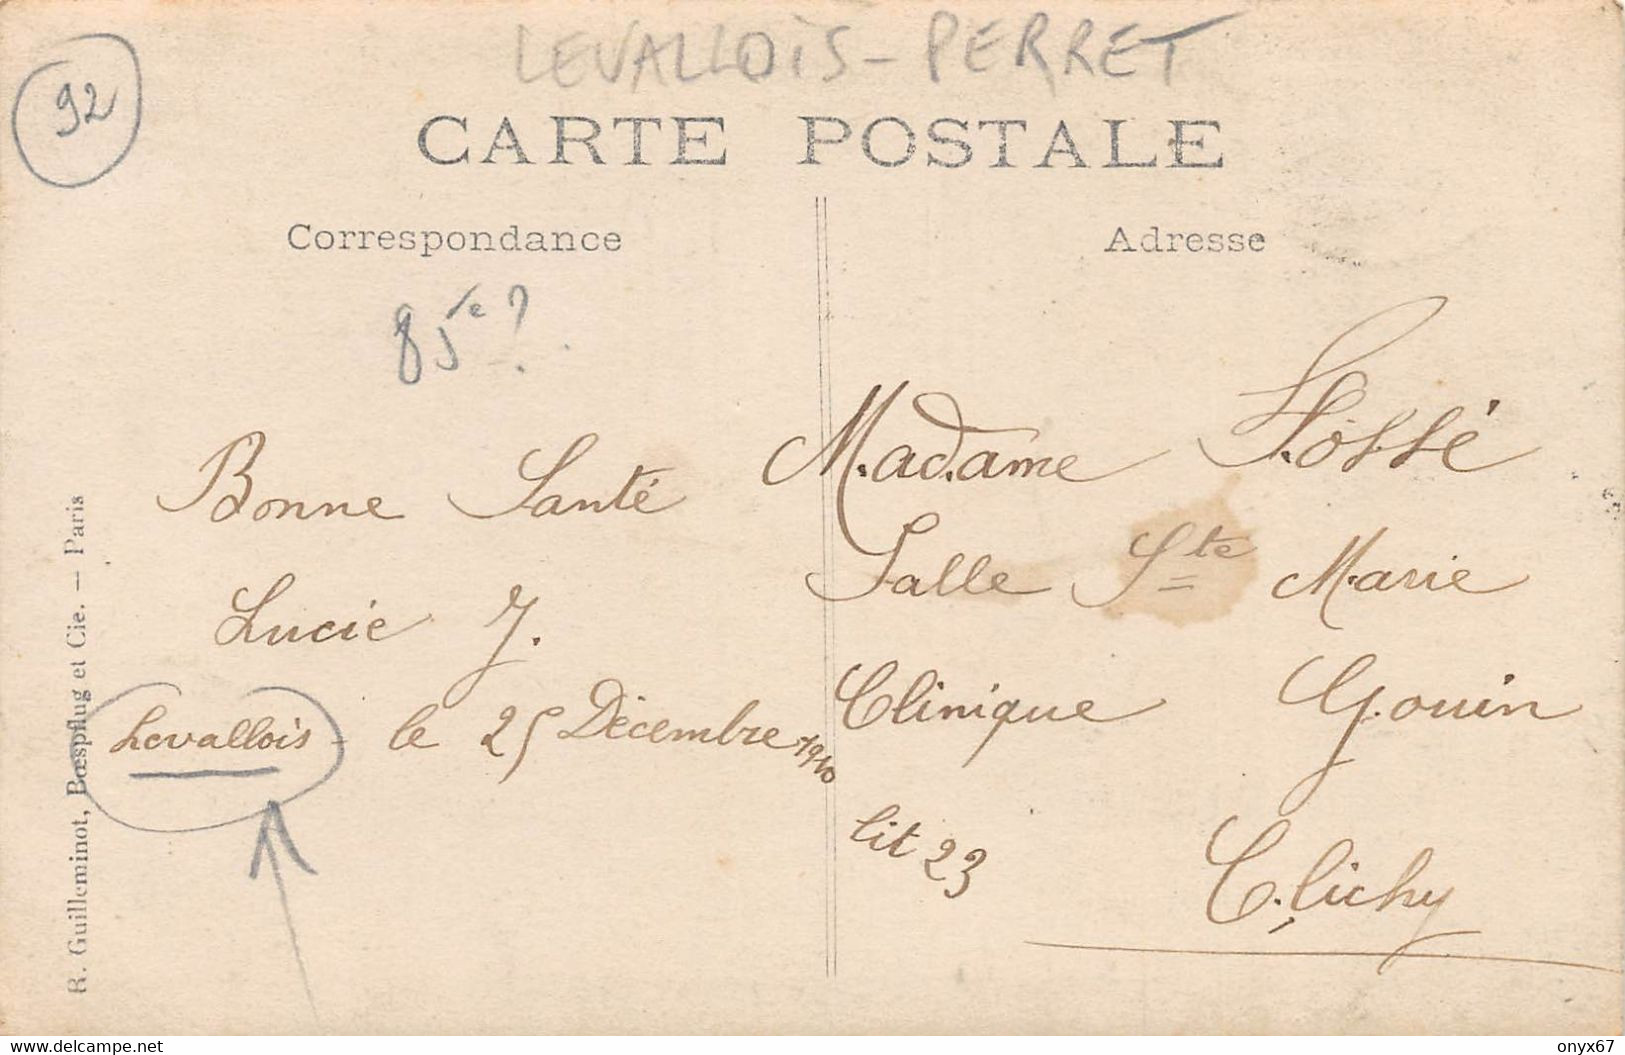 LEVALLOIS-PERRET
92
CARTE POSTALE
Correspondance
Adresse
85e ?
Bonne Santé
Lucie J.
Levallois - le 25 Décembre 1910
Madame Fossé
Salle Ste Marie
Clinique Gouin
lit 23
Clichy
R. Guilleminot, Bœspflug et Cie. — Paris
delcampe.net
onyx67